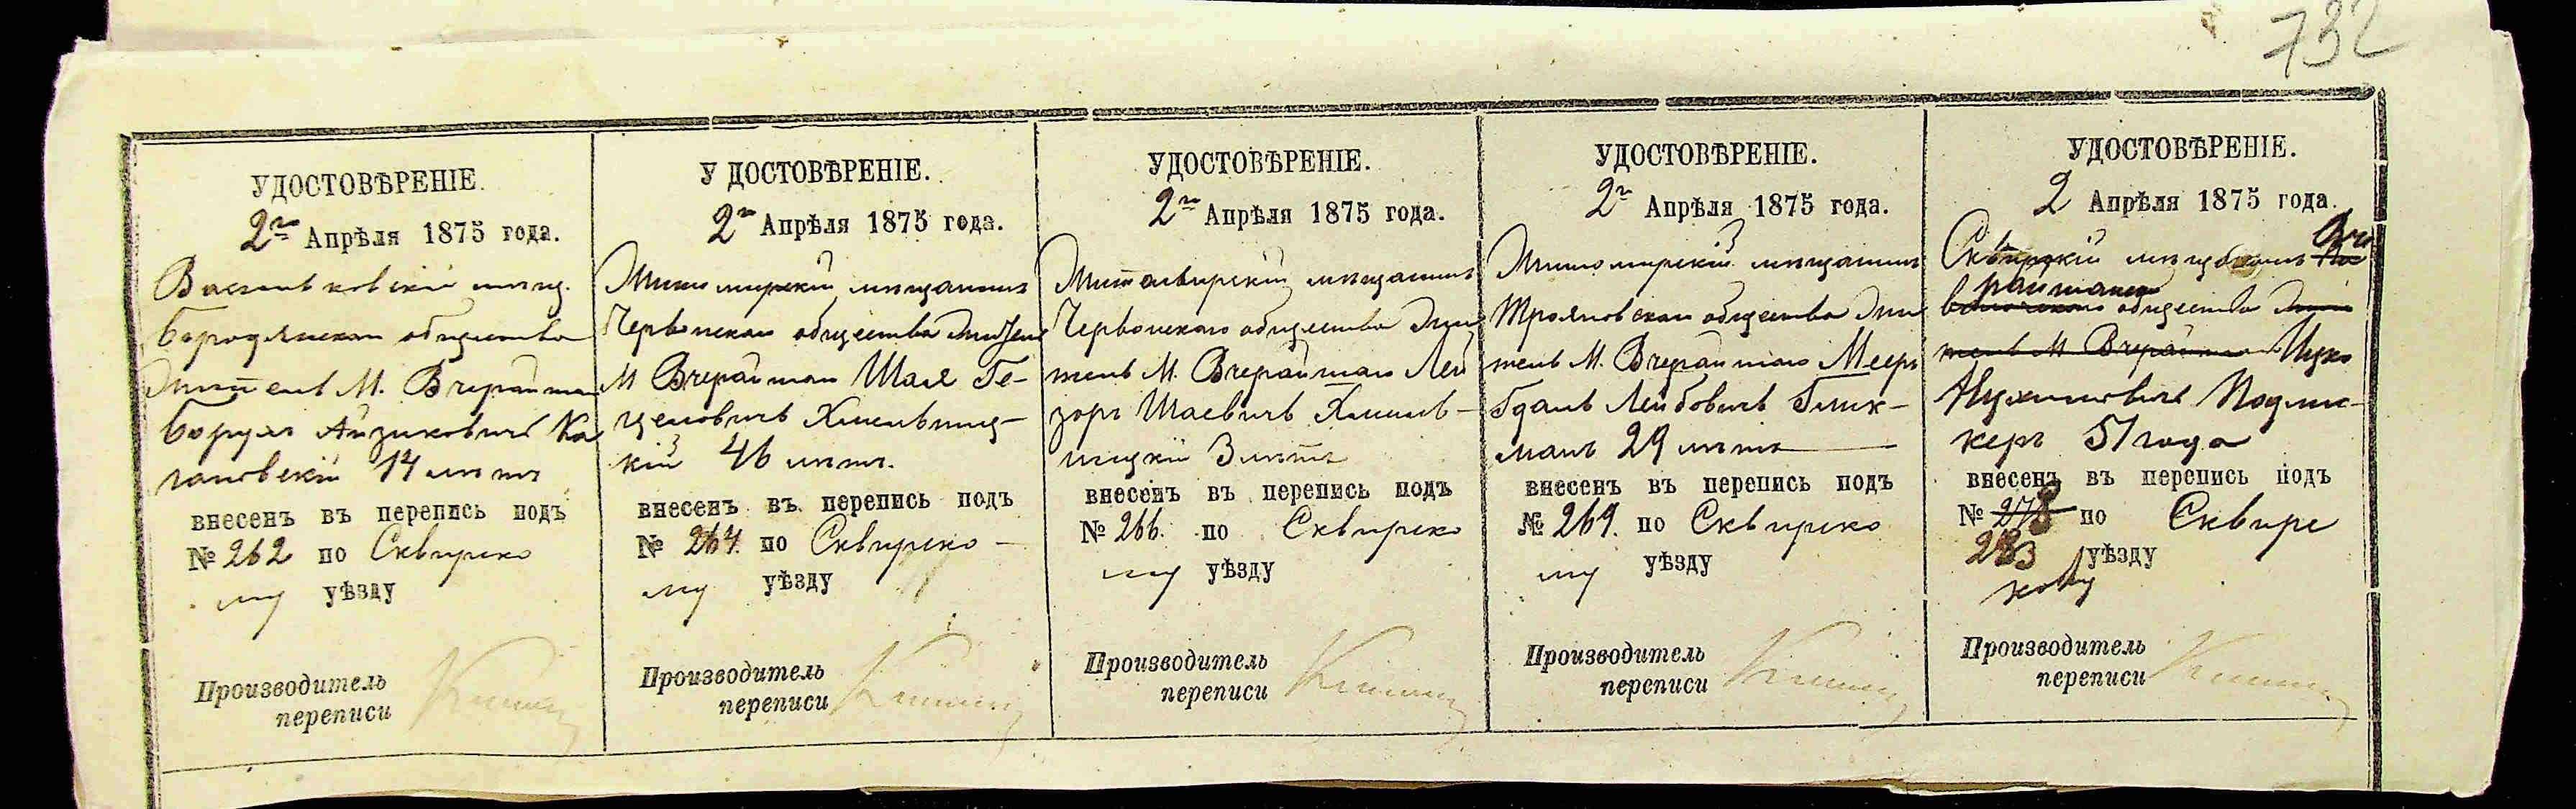 732
УДОСТОВѢРЕНІЕ.
2го Апрѣля 1875 года.
Васильковскій мѣщ.
Бородянскаго общества
житель М. Вчерайша
Борухъ Айзиковичъ Ка
гановскій 14 лѣтъ
внесенъ въ перепись подъ
№ 262 по Сквирско
му уѣзду
Производитель
переписи
УДОСТОВѢРЕНІЕ.
2го Апрѣля 1875 года.
Житомирскій мѣщанинъ
Червонскаго общества житель
М Вчерайшаго Шая Ге-
целовичъ Хмельниц-
кій 46 лѣтъ.
внесенъ въ перепись подъ
№ 264. по Сквирско-
му уѣзду
Производитель
переписи
УДОСТОВѢРЕНІЕ.
2го Апрѣля 1875 года.
Житомирскій мѣщанинъ
Червонскаго общества жи
тель М. Вчерайшаго Лей
зоръ Шаевичъ Хмель-
ницкій 3 лѣтъ
внесенъ въ перепись подъ
№ 266. по Сквирско
му уѣзду
Производитель
переписи
УДОСТОВѢРЕНІЕ.
2го Апрѣля 1875 года.
Житомирскій мѣщанинъ
Трояновскаго общества жи
тель М. Вчерайшаго Мееръ
Гдаль Лейбовичъ Глик-
манъ 29 лѣтъ
внесенъ въ перепись подъ
№ 269. по Сквирско
му уѣзду
Производитель
переписи
УДОСТОВѢРЕНІЕ.
2 Апрѣля 1875 года.
Сквирскій мѣщанинъ Вче
райшанск
общества жи
тель М Вчерайшаго Ицко
Нухимовичъ Подлис-
керъ 51 года
внесенъ въ перепись подъ
№ 278 по Сквирс
283 уѣзду
кому
Производитель
переписи